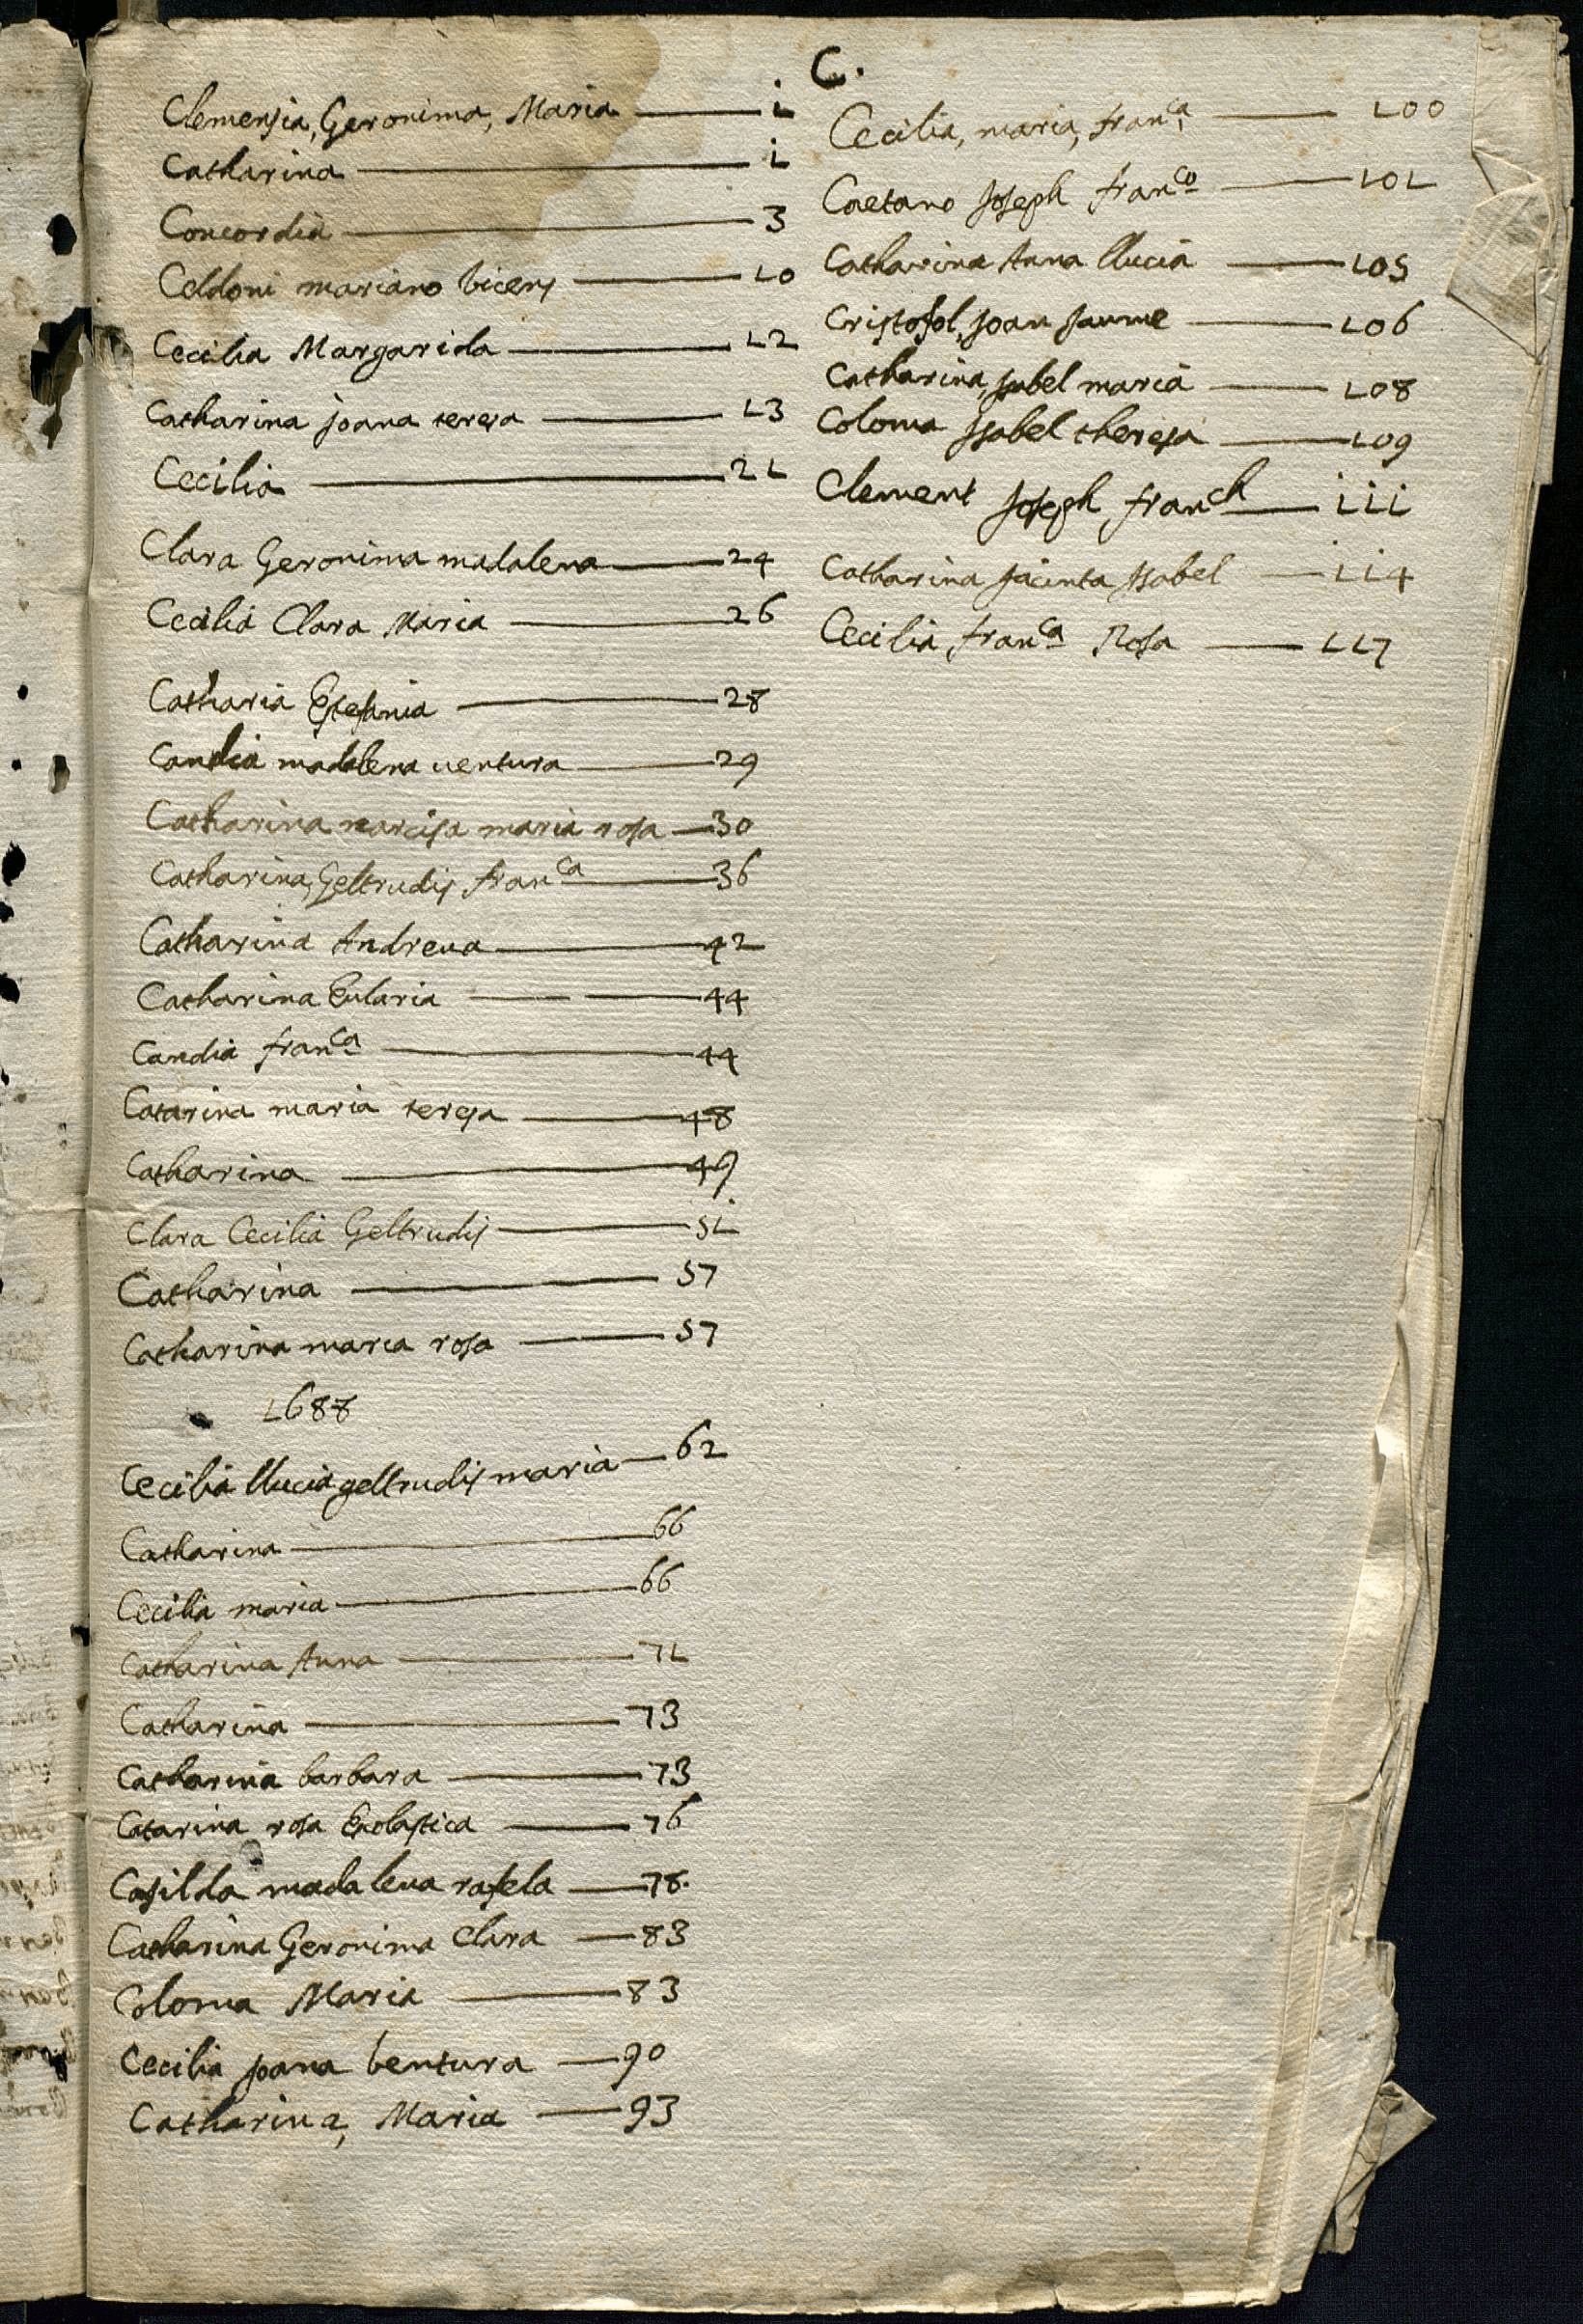 C.
Clemensia, Geronima, Maria — 1
Catharina — 1
Concordia — 3
Celdoni mariano vicens — 10
Cecilia Margarida — 12
Catharina joana teresa — 13
Cecilia — 21
Clara Geronima madalena — 24
Cecilia Clara Maria — 26
Catharia Estefania — 28
Candia madalena uentura — 29
Catharina narcisa maria rosa — 30
Catharina Geltrudis franca — 36
Catharina Andreua — 42
Catharina Eularia — 44
Candia franca — 44
Catarina maria teresa — 48
Catharina — 49
Clara Cecilia Geltrudis — 51
Catharina — 57
Catharina maria rosa — 57
1688
Cecilia llucia geltrudis maria — 62
Catharina — 66
Cecilia maria — 66
Catharina Anna — 71
Catharina — 73
Catharina barbara — 73
Catarina rosa Escolastica — 76
Casilda madalena rafela — 78.
Catharina Geronima Clara — 83
Coloma Maria — 83
Cecilia joana bentura — 90
Catharina, Maria — 93
Cecilia, maria, franca — 100
Caetano Joseph franco — 101
Catharina Anna llucia — 105
Cristofol, Joan Jaume — 106
Catharina, Isabel maria — 108
Coloma Isabel theresa — 109
Clement Joseph franch — 111
Catharina Jacinta Isabel — 114
Cecilia, franca Rosa — 117